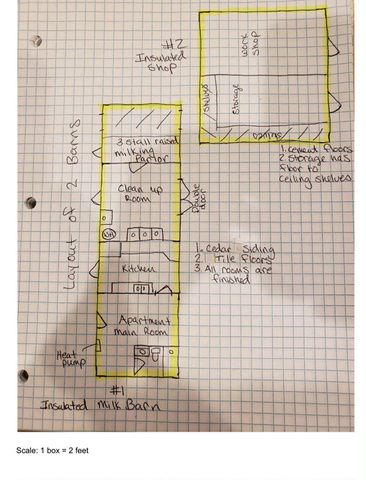 #2
Insulated
Shop
work
shop
Shelves
Storage
awning
1. Cement floors
2 Storage has
floor to
ceiling shelves
Layout of 2 Barns
3 stall raised
milking
Parlor
Clean up
Room
Double
door
WH
Kitchen
1. Cedar siding
2 Tile floors
3 All rooms are
finished
Apartment
main Room
Heat
pump
#1
Insulated Milk Barn
Scale: 1 box = 2 feet